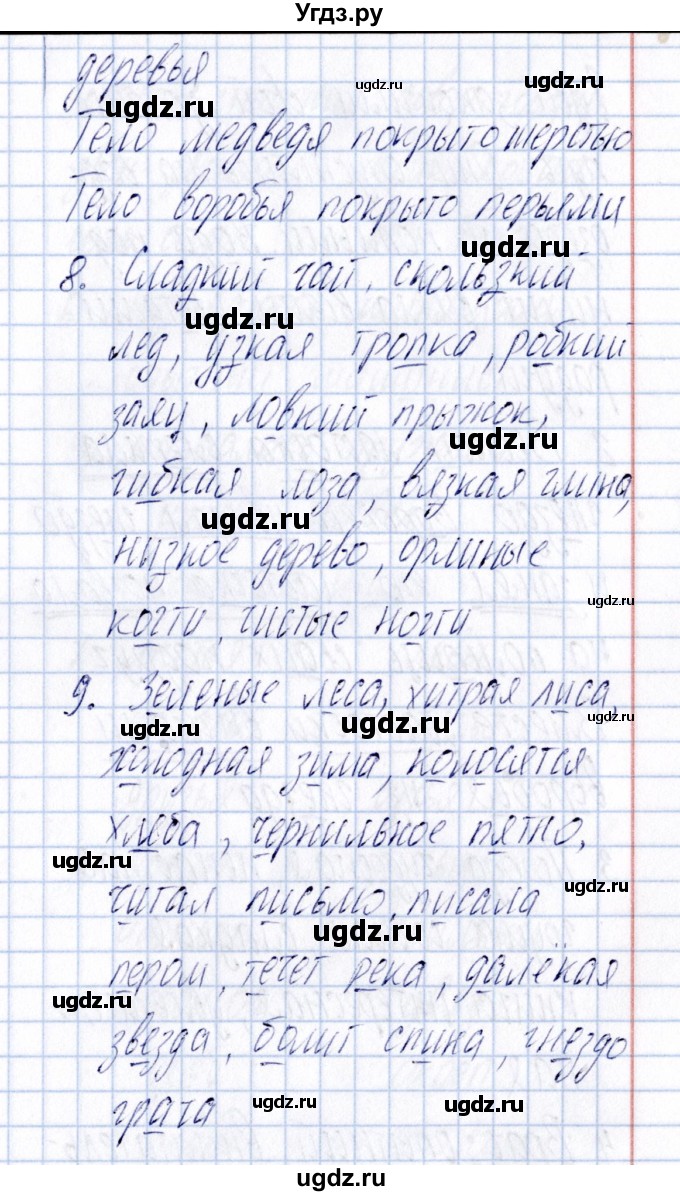 Угдз.ру
деревья
ugdz.ru
ugdz.ru
ugdz.ru
Тело медведя покрыто шерстью
Тело воробья покрыто перьями
ugdz.ru
8. Сладкий чай, скользкий
ugdz.ru
лед, узкая тропка, робкий
заяц, ловкий прыжок,
ugdz.ru
гибкая лоза, вязкая глина,
ugdz.ru
низкое дерево, орлиные
ugdz.ru
когти, чистые ногти
9. Зеленые леса, хитрая лиса,
ugdz.ru
ugdz.ru
ugdz.ru
холодная зима, колосятся
хлеба, чернильное пятно,
ugdz.ru
ugdz.ru
читал письмо, писала
ugdz.ru
пером, течет река, далёкая
ugdz.ru
звезда, болит спина, гнездо
грача
ugdz.ru
ugdz.ru
ugdz.ru